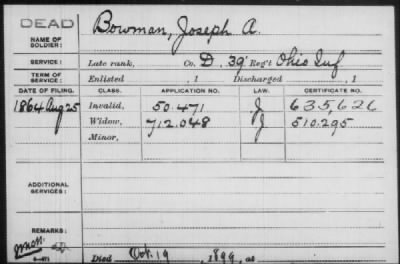 DEAD
NAME OF SOLDIER: Bowman, Joseph A.
SERVICE: Late rank, Co. D, 39' Reg't Ohio Inf
TERM OF SERVICE: Enlisted , 1 Discharged , 1
DATE OF FILING. CLASS. APPLICATION NO. LAW. CERTIFICATE NO.
1864 Aug 25 Invalid, 50.471 J 635,626
Widow, 712.048 J 510.295
Minor,
ADDITIONAL SERVICES:
REMARKS:
Died Oct. 19, 1899, at